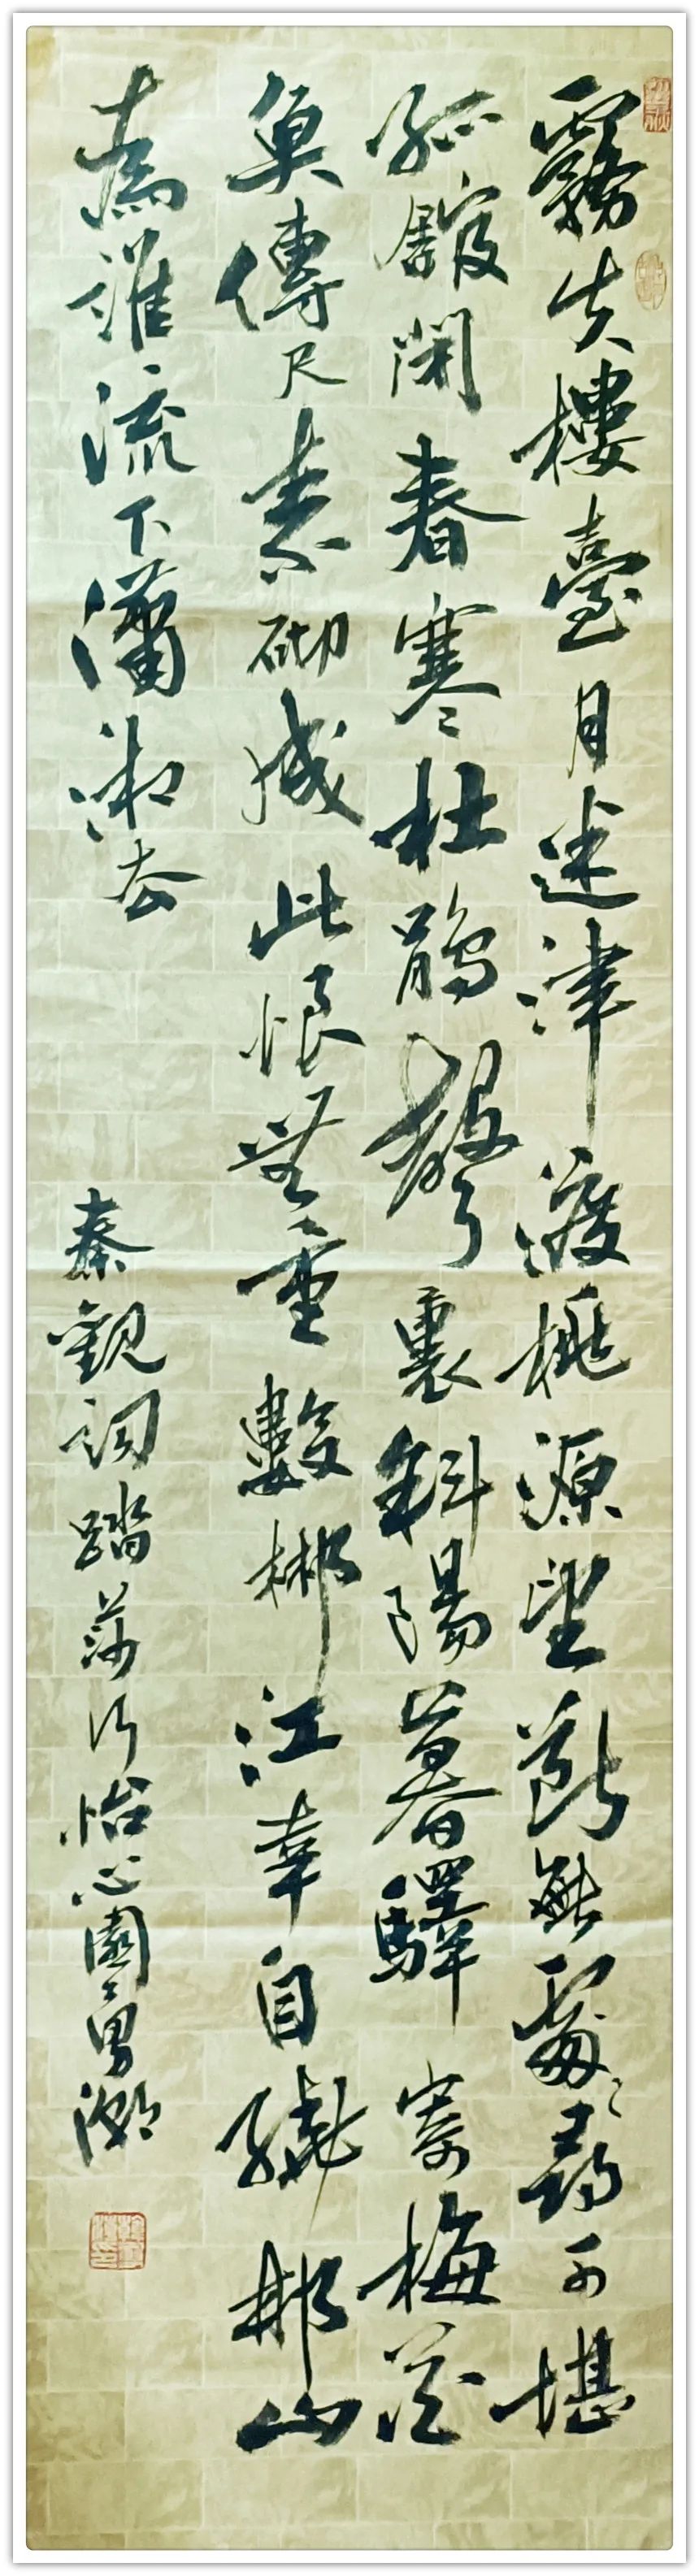 霧失樓臺月迷津渡桃源望斷無處尋可堪
孤館閉春寒杜鵑聲裏斜陽暮驛寄梅花
魚傳尺素砌成此恨無重數郴江幸自繞郴山
為誰流下瀟湘去
秦觀詞踏莎行怡心園勇潮